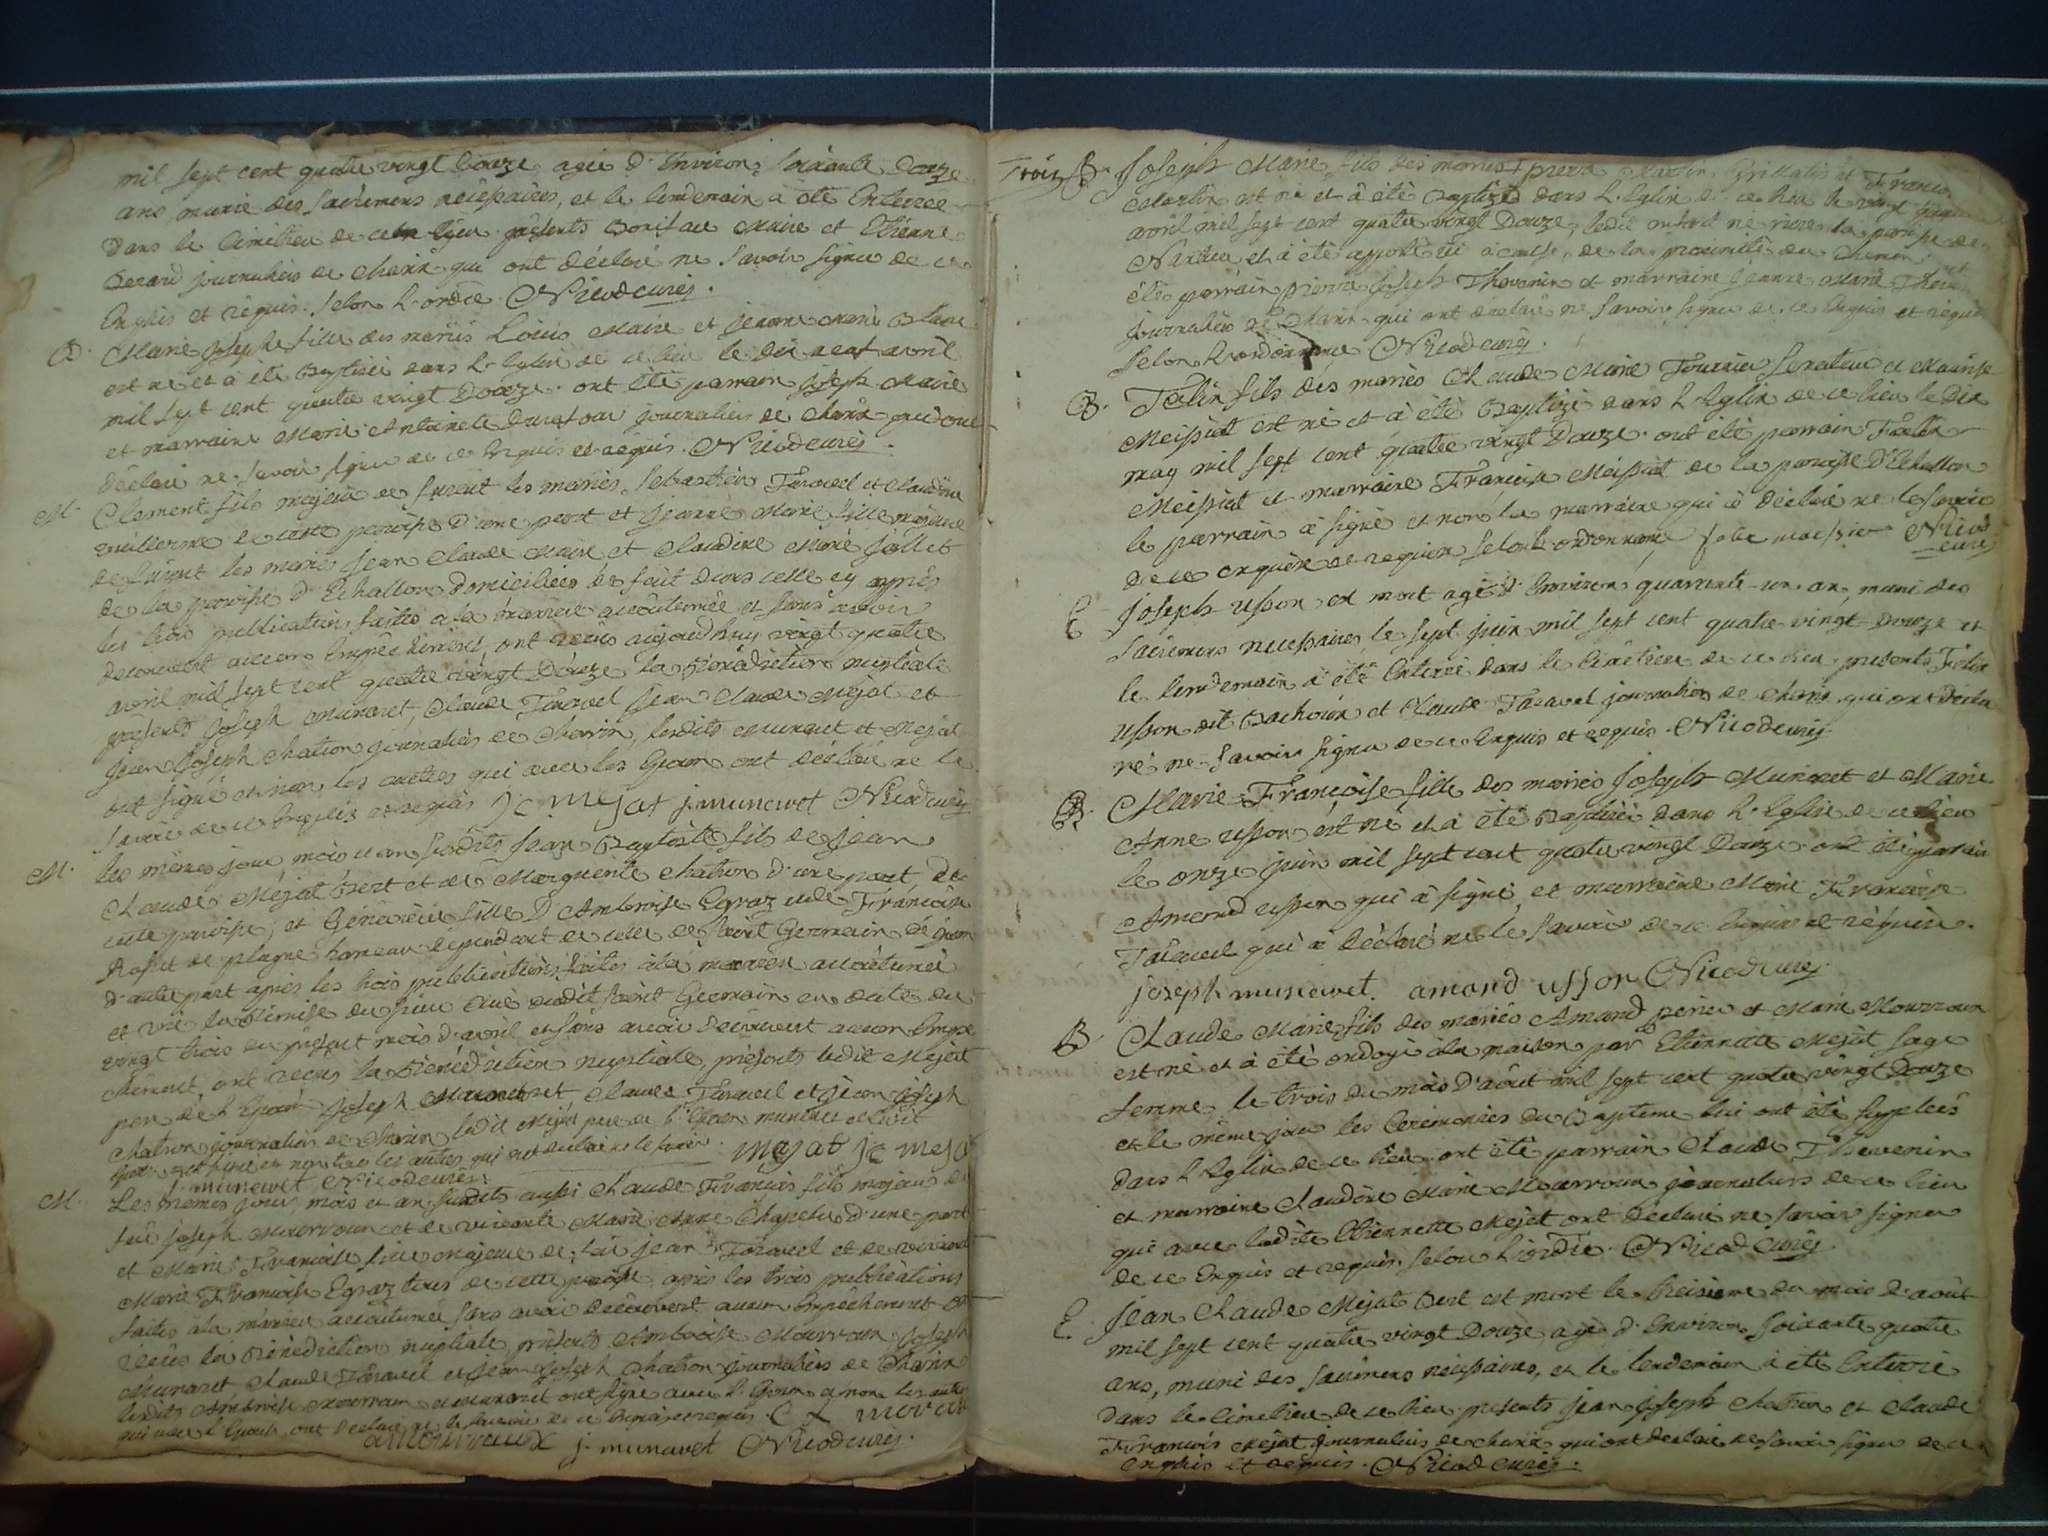 mil sept cent quatre vingt Douze agée d'Environ soixante Douze
ans, munie des sacremens nécessaires, et le lendemain a été Enterrée
dans le Cimitiere de ce lieu présents Boniface Maire et Etienne
journaliers de Charix qui ont déclaré ne savoir signer de ce
Enquis et requis selon l'ordre. Nicod curé.
B. Marie Josephe fille des mariés Louis Maire et jeanne Marie Blanc
est né et a été Baptisée dans l'Eglise de ce lieu le dix neuf avril
mil sept cent quatre vingt Douze. ont été parrain joseph Maire
et marraine Marie Antoinete journaliers de Charix qui ont
déclaré ne savoir signer de ce Enquis et requis. Nicod curé.
M. Clement fils majeur de furent les mariés Sebastien Taravel et Claudine
de cette paroisse d'une part et jeanne Marie fille majeure
de furent les mariés jean Claude Maire et Claudine Marie jollet
de la paroisse d'Echallon domiciliée de fait dans celle cy après
les trois publications faites a la maniere accoutumée et sans avoir
decouvert aucun Empêchement, ont reçus aujourdhuy vingt quatre
avril mil sept cent quatre vingt Douze la Bénédiction nuptiale
présents joseph munaret, Claude Taravel jean Claude Méjat et
jean joseph Chatron journaliers de Charix, lesdits munaret et Mejat
ont signé et non les autres qui avec les Epoux ont déclaré ne le
savoir de ce Enquis et requis J C Mejat j. munaret Nicod curé
M. les mêmes jour mois et an susdits jean Baptiste fils de jean
Claude Méjat Bert et de Marguerite Chatron d'une part de
cette paroisse, et Généviève fille D'Ambroise Egraz et de Françoise
de plagne hameau dépendant de celle de saint Germain de joux
d'autre part après les trois publications faites à la manière accoutumée
et vu la Remise du sieur Curé dudit saint Germain en date du
vingt trois du présent mois d'avril et sans avoir découvert aucun Empe
chement ont reçus la Bénédiction nuptiale, présents ledit Mejat
pere de l'Epoux joseph Munaret Claude Taravel et jean joseph
Chatron journaliers de Charix ledit Mejat pere de l'Epoux munaret
et non les autres qui ont declaré ne le savoir. mejat J C Mejat
j. munaret Nicod curé.
M. Les mêmes jour, mois et an susdits aussi Claude François fils majeur de
feu joseph Mourroux et de vivante Marie Anne Chapelu d'une part
et Marie Françoise fille majeure de feu jean Taravel et de vivante
Marie Françoise Egraz tous de cette paroisse après les trois publications
faites à la manière accoutumée sans avoir découvert aucun Empêchement ont
reçus la Bénédiction nuptiale, présents Ambroise Mourroux joseph
Munaret Claude Taravel et jean joseph Chatron journaliers de Charix
lesdits Ambroise Mourroux et munaret ont signé avec l'Epoux et non les autres
qui avec l'Epouse ont déclaré ne le savoir de ce Enquis et requis. C
j. munaret Nicod curé.
Trois B. Joseph Marie fils des mariés pierre et
Martin est né et a été Baptizé dans l'Eglise de ce lieu le vingt
avril mil sept cent quatre vingt Douze, la paroisse de
et a été apporté ici a cause de la proximité du Chemin
été parrain pierre joseph Thevenin et marraine jeanne Marie
journaliers de Charix qui ont déclaré ne savoir signer de ce Enquis et requis
selon l'ordonnance Nicod curé.
B. Felix fils des mariés Claude Marie Tournier et
Meissiat est né et a été Baptizé dans l'Eglise de ce lieu le dix
may mil sept cent quatre vingt Douze. ont été parrain Felix
Meissiat et marraine Françoise Meissiat de la paroisse D'Echallon
le parrain a signé et non la marraine qui a déclaré ne le savoir
de ce enquise et requise selon l'ordonnance Nicod
curé
E Joseph Usson est mort agé d'Environ quarante un an, muni des
sacremens necessaires, le sept juin mil sept cent quatre vingt Douze et
le lendemain a été Enterré dans le Cimetiere de ce lieu presents Felix
Usson dit et Claude Taravel journaliers de Charix qui ont décla
ré ne savoir signer de ce Enquis et requis. Nicod curé
B. Marie Françoise fille des mariés Joseph Munaret et Marie
Anne Usson est né et a été Baptisée dans l'Eglise de ce lieu
le onze juin mil sept cent quatre vingt Douze. ont été parrain
Amand usson qui a signé, et marraine Marie Françoise
Taravel qui a déclaré ne le savoir de ce Enquise et requise.
joseph munaret. amand usson Nicod curé
B. Claude Marie fils des mariés Amand perier et Marie Mourroux
est né et a été ondoyé à la maison par Etiennette Mejat sage
femme, le trois du mois D'août mil sept cent quatre vingt Douze
et le même jour les Ceremonies du Baptême lui ont été supplées
dans l'Eglise de ce lieu. ont été parrain Claude Thevenin
et marraine Claudine Marie Mourroux journaliers de ce lieu
qui avec ladite Etiennette Mejat ont declaré ne savoir signer
de ce Enquis et requis selon l'ordre. Nicod curé
E. Jean Claude Mejat Bert est mort le troisieme du mois d'août
mil sept cent quatre vingt Douze agé d'Environ soixante quatre
ans, muni des sacremens nécessaires, et le lendemain a été Enterré
dans le Cimetiere de ce lieu. présents jean joseph Chatron et Claude
François Mejat journaliers de Charix qui ont declaré ne savoir signer de ce
enquis et requis. Nicod curé.